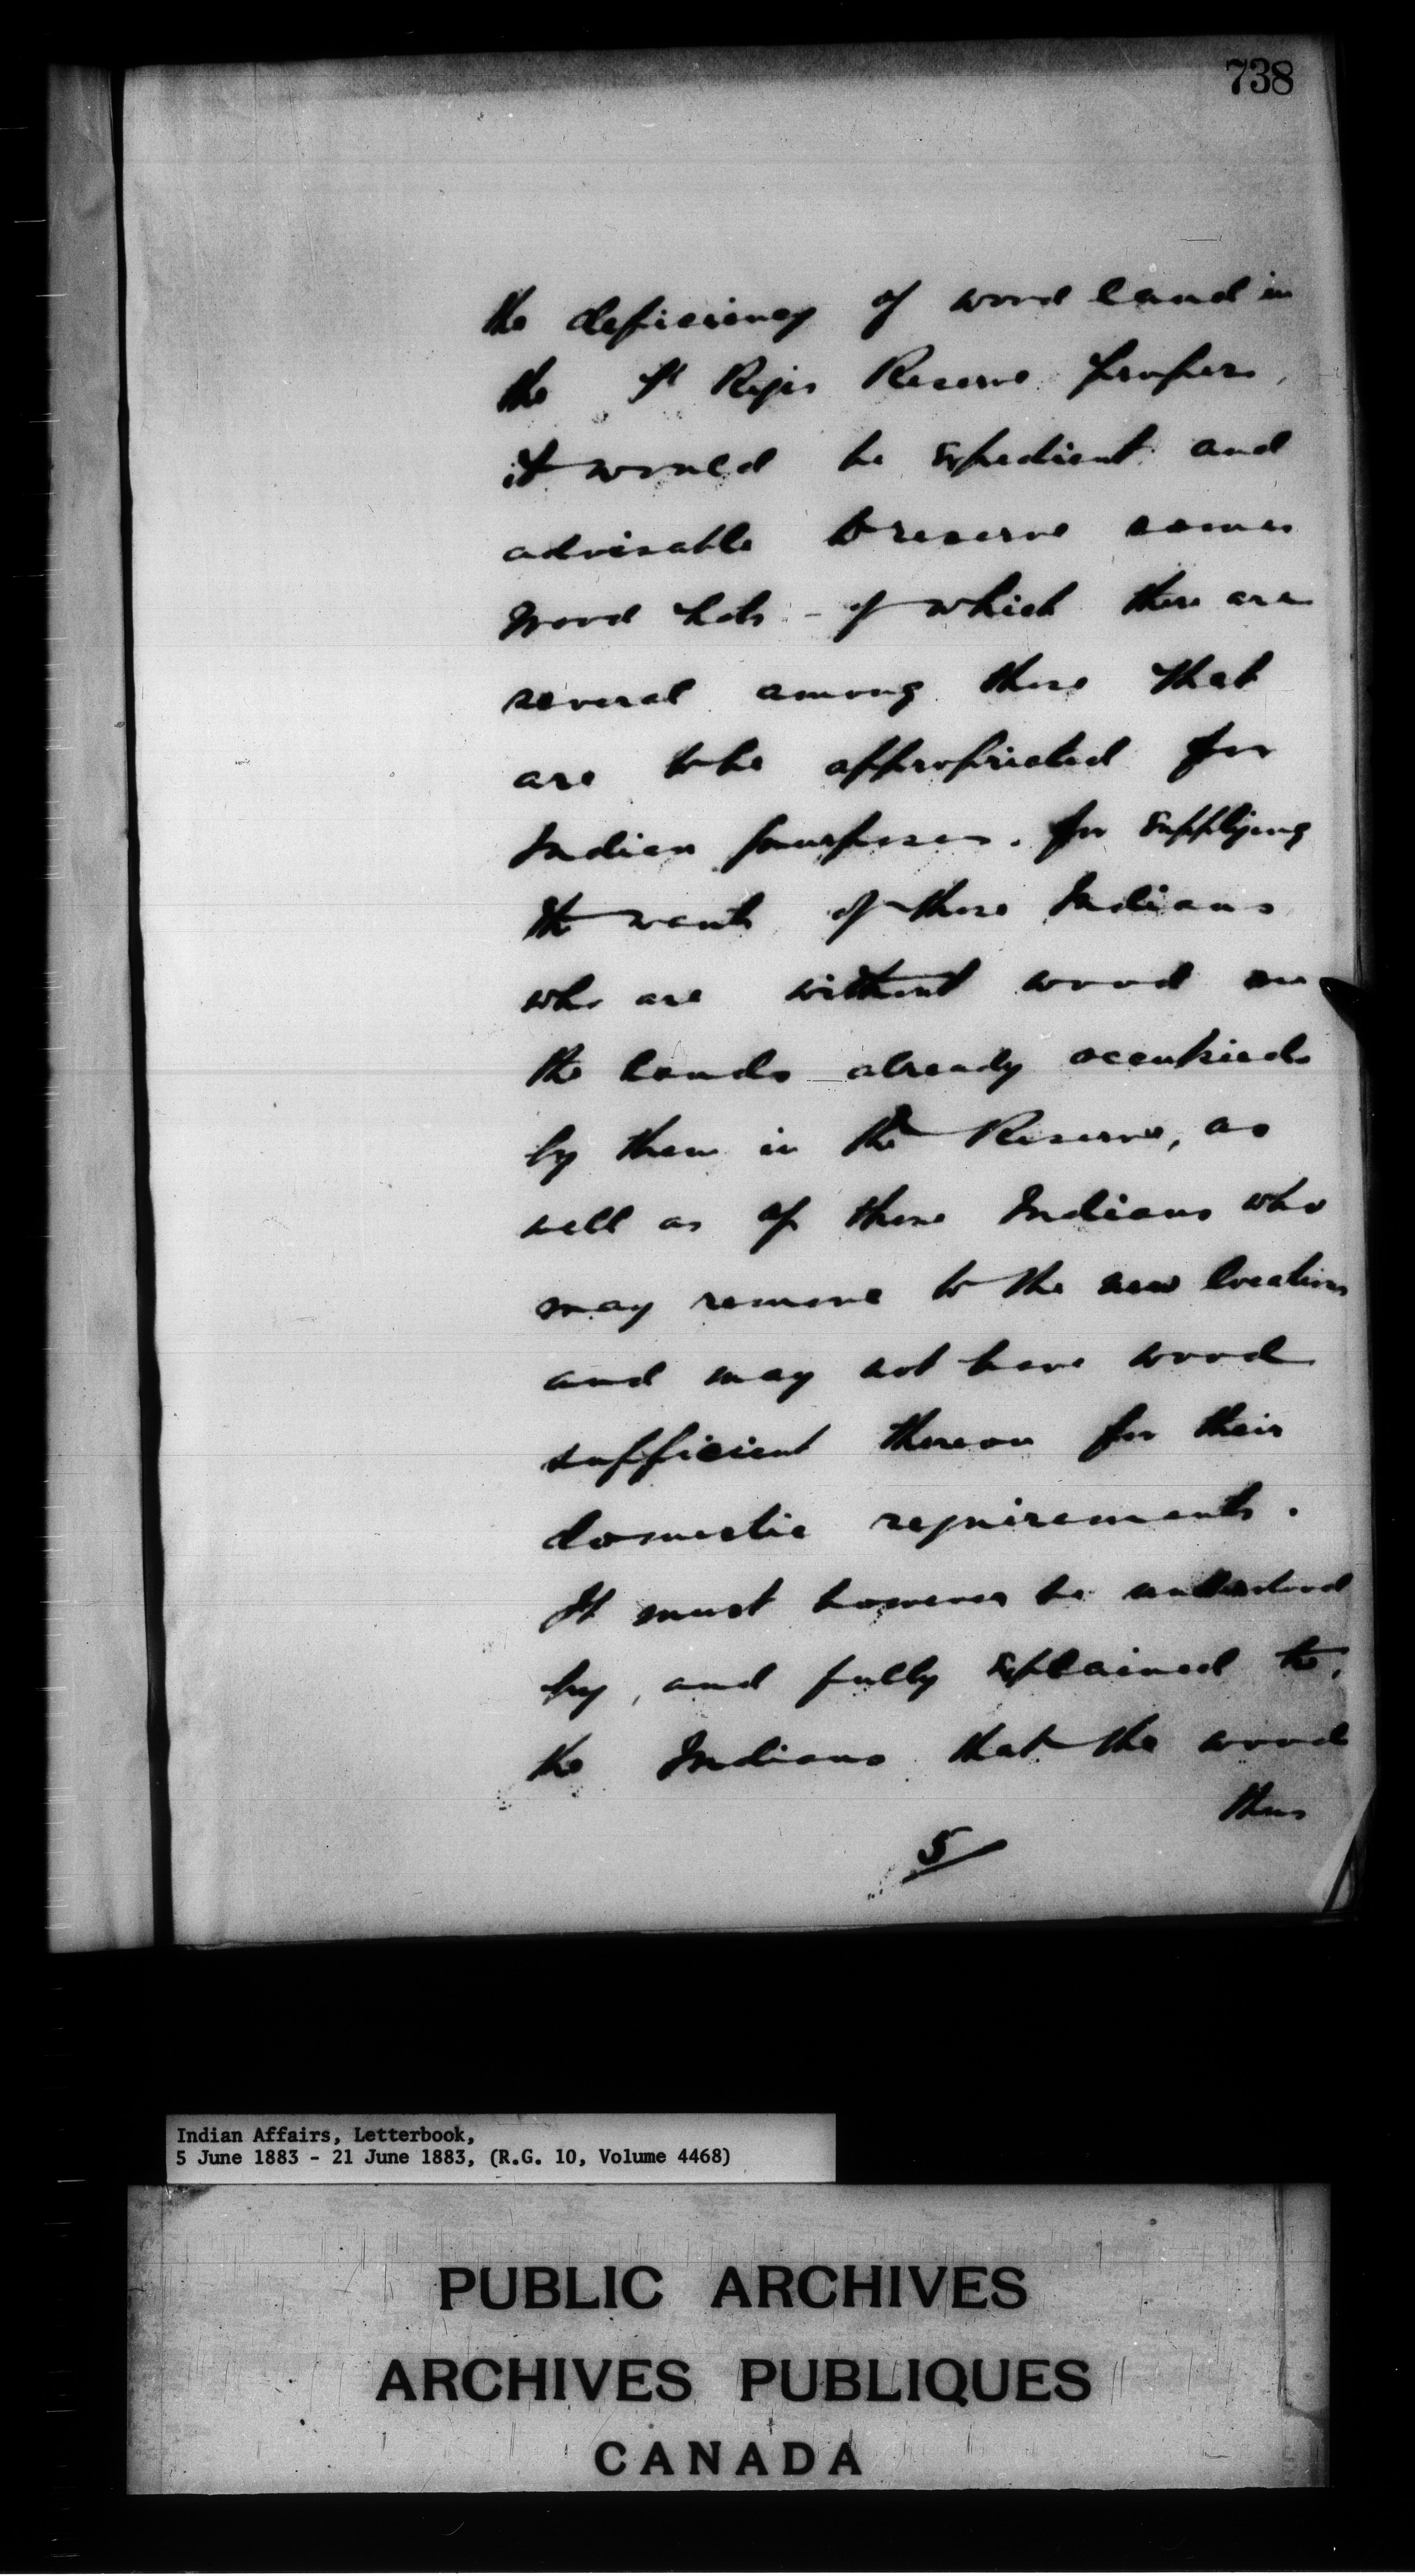 738
the deficiency of wood land in
the St Regis Reserve proper,
it would be expedient and
advisable to reserve some
Wood Lots - of which there are
several among those that
are to be appropriated for
Indian purposes. for supplying
the wants of those Indians
who are without wood on
the lands already occupied
by them in the Reserve, as
well as of those Indians who
may remove to the new locations
and may not have wood
sufficient thereon for their
domestic requirements.
It must however be understood
by, and fully explained to,
the Indians that the wood
thus
5
Indian Affairs, Letterbook,
5 June 1883 - 21 June 1883, (R.G. 10, Volume 4468)
PUBLIC ARCHIVES
ARCHIVES PUBLIQUES
CANADA